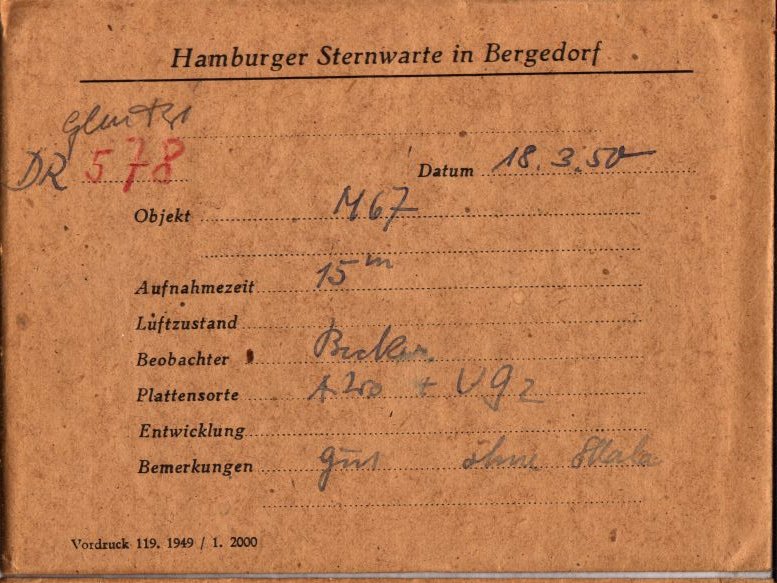 Hamburger Sternwarte in Bergedorf
DR 578
Datum 18.3.50
Objekt M67
Aufnahmezeit 15m
Luftzustand
Beobachter
Plattensorte + UG2
Entwicklung
Bemerkungen gut ohne Skala
Vordruck 119. 1949 / 1. 2000